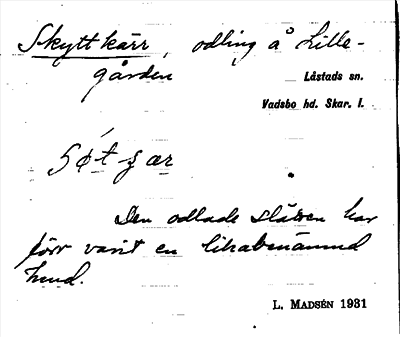 Skyttkärr, odling å Lille-
gården
Låstads sn.
Vadsbo hd. Skar. l.
Den odlade slätten har
förr varit en likabenämnd
L. MADSÉN 1931